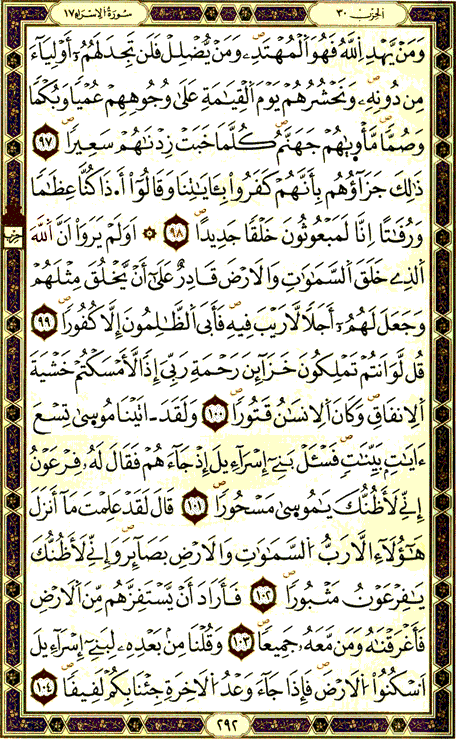 الحزب ٣٠ سُورَةُ الإِسْرَاء ١٧
وَمَنْ يَّهْدِ اِ۬للَّهُ فَهُوَ اَ۬لْمُهْتَدِۦ وَمَنْ يُّضْلِلْ فَلَن تَجِدَ لَهُمُۥٓ أَوْلِيَآءَ
مِن دُونِهِۦ وَنَحْشُرُهُمْ يَوْمَ اَ۬لْقِيَٰمَةِ عَلَىٰ وُجُوهِهِمْ عُمْياً وَبُكْماً
وَصُمّاً مَّأْوِيٰهُمْ جَهَنَّمُ كُلَّمَا خَبَتْ زِدْنَٰهُمْ سَعِيراً ٩٧
ذَٰلِكَ جَزَآؤُهُم بِأَنَّهُمْ كَفَرُواْ بِـَٔايَٰتِنَا وَقَالُوٓاْ أَ.ذَا كُنَّا عِظَٰماً
وَرُفَٰتاً اِنَّا لَمَبْعُوثُونَ خَلْقاً جَدِيداً ٩٨ ۞ اَوَلَمْ يَرَوَاْ اَنَّ اَ۬للَّهَ
اَ۬لذِے خَلَقَ اَ۬لسَّمَٰوَٰتِ وَالَارْضَ قَادِرٌ عَلَىٰٓ أَنْ يَّخْلُقَ مِثْلَهُمْ
وَجَعَلَ لَهُمُۥٓ أَجَلاً لَّا رَيْبَ فِيهِ فَأَبَي اَ۬لظَّٰلِمُونَ إِلَّا كُفُوراً ٩٩
قُل لَّوَ اَنتُمْ تَمْلِكُونَ خَزَآئِنَ رَحْمَةِ رَبِّيَ إِذاً لَّأَمْسَكْتُمْ خَشْيَةَ
اَ۬لِانفَاقِ وَكَانَ اَ۬لِانسَٰنُ قَتُوراً ١٠٠ وَلَقَدَ اٰتَيْنَا مُوس۪ىٰ تِسْعَ
ءَايَٰتِۢ بَيِّنَٰتٍ فَسْـَٔلْ بَنِےٓ إِسْرَآءِيلَ إِذْ جَآءَهُمْ فَقَالَ لَهُۥ فِرْعَوْنُ
إِنِّے لَأَظُنُّكَ يَٰمُوس۪ىٰ مَسْحُوراً ١٠١ قَالَ لَقَدْ عَلِمْتَ مَآ أَنزَلَ
هَٰٓؤُلَآءِ الَّا رَبُّ اُ۬لسَّمَٰوَٰتِ وَالَارْضِ بَصَآئِرَ وَإِنِّے لَأَظُنُّكَ
يَٰفِرْعَوْنُ مَثْبُوراً ١٠٢ فَأَرَادَ أَنْ يَّسْتَفِزَّهُم مِّنَ اَ۬لَارْضِ
فَأَغْرَقْنَٰهُ وَمَن مَّعَهُۥ جَمِيعاً ١٠٣ وَقُلْنَا مِنۢ بَعْدِهِۦ لِبَنِےٓ إِسْرَآءِيلَ
اَ۟سْكُنُواْ اُ۬لَارْضَ فَإِذَا جَآءَ وَعْدُ اُ۬لَاخِرَةِ جِئْنَا بِكُمْ لَفِيفاً ١٠٤
٢٩٢